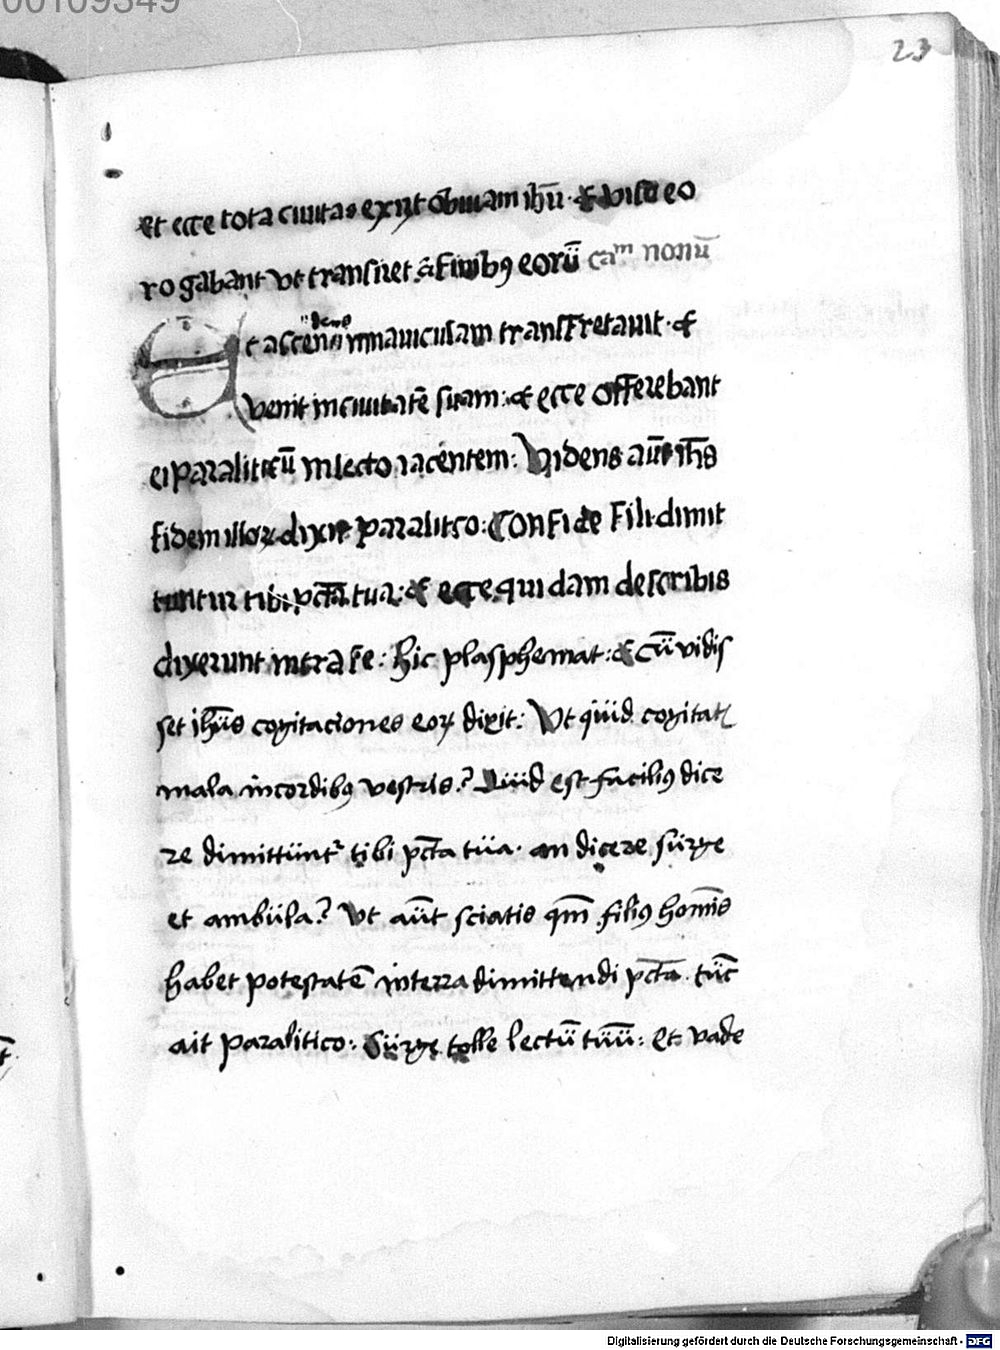 00109349
23
et ecce tota ciuitas exiit obuiam ihū· & viso eo
rogabant vt transiret a finibꝰ eorū caᵐ nonū
Et ascendens in nauiculam transfretauit· &
venit in ciuitatē suam: & ecce offerebant
ei paraliticū in lecto iacentem: Videns aūt ihs̄
fidem illoꝝ dixit paralitco: Confide Fili dimit
tuntur tibi pctā tua: & ecce quidam de scribis
dixerunt intra se: hic plasphemat: & cū vidis
set ihūs cogitaciones eoꝝ dixit: Vt quid cogitatꝭ
mala in cordibꝰ vestris? Quid est faciliꝰ dice
re dimittunt᷑ tibi pctā tua· an dicere surge
et ambula? Vt aūt sciatis qm̄ filiꝰ homīs
habet potestatē in terra dimittendi pctā· tūc
ait paralitico: Surge tolle lectū tuū: et vade
Digitalisierung gefördert durch die Deutsche Forschungsgemeinschaft - DFG